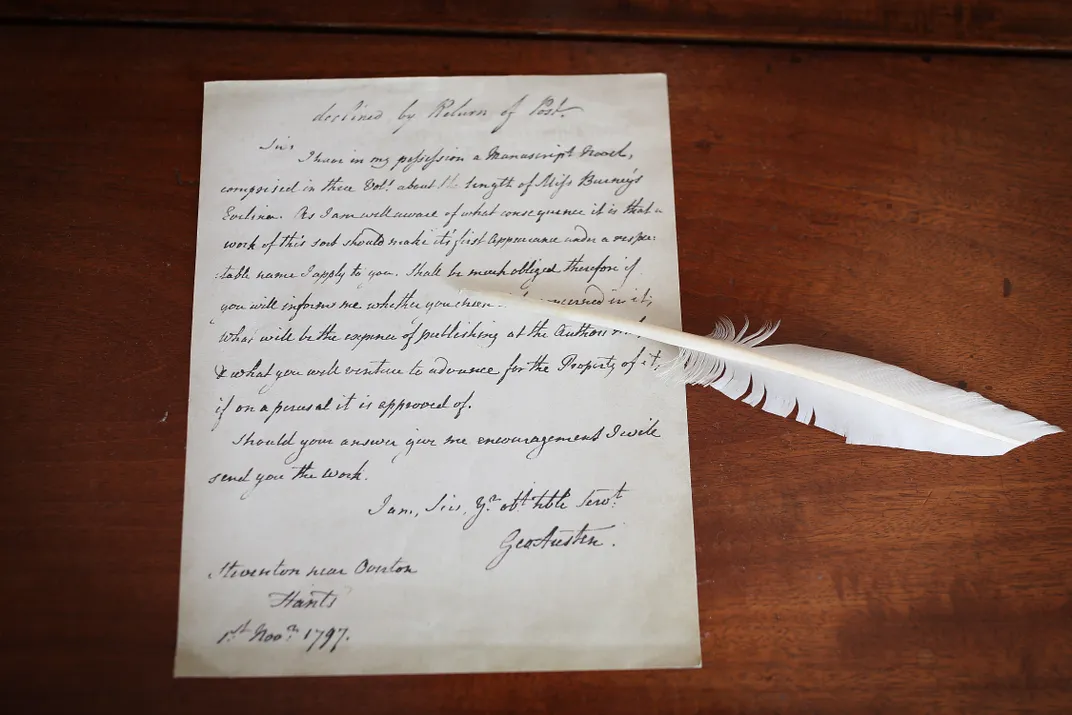 declined by Return of Post.
Sir,
I have in my possession a Manuscript Novel,
comprised in three Vols. about the length of Miss Burney's
Evelina. As I am well aware of what consequence it is that a
work of this sort should make it's first Appearance under a respec:
:table name I apply to you. Shall be much obliged therefore if
you will inform me whether you chuse concerned in it;
what will be the expence of publishing at the Author's
& what you will venture to advance for the Property of it,
if on a perusal it is approved of.
Should your answer give me encouragement I will
send you the Work.
I am, Sir, Yr. obt. hble Servt.
Geo Austen.
Steventon near Overton
Hants
1st. Novr. 1797.